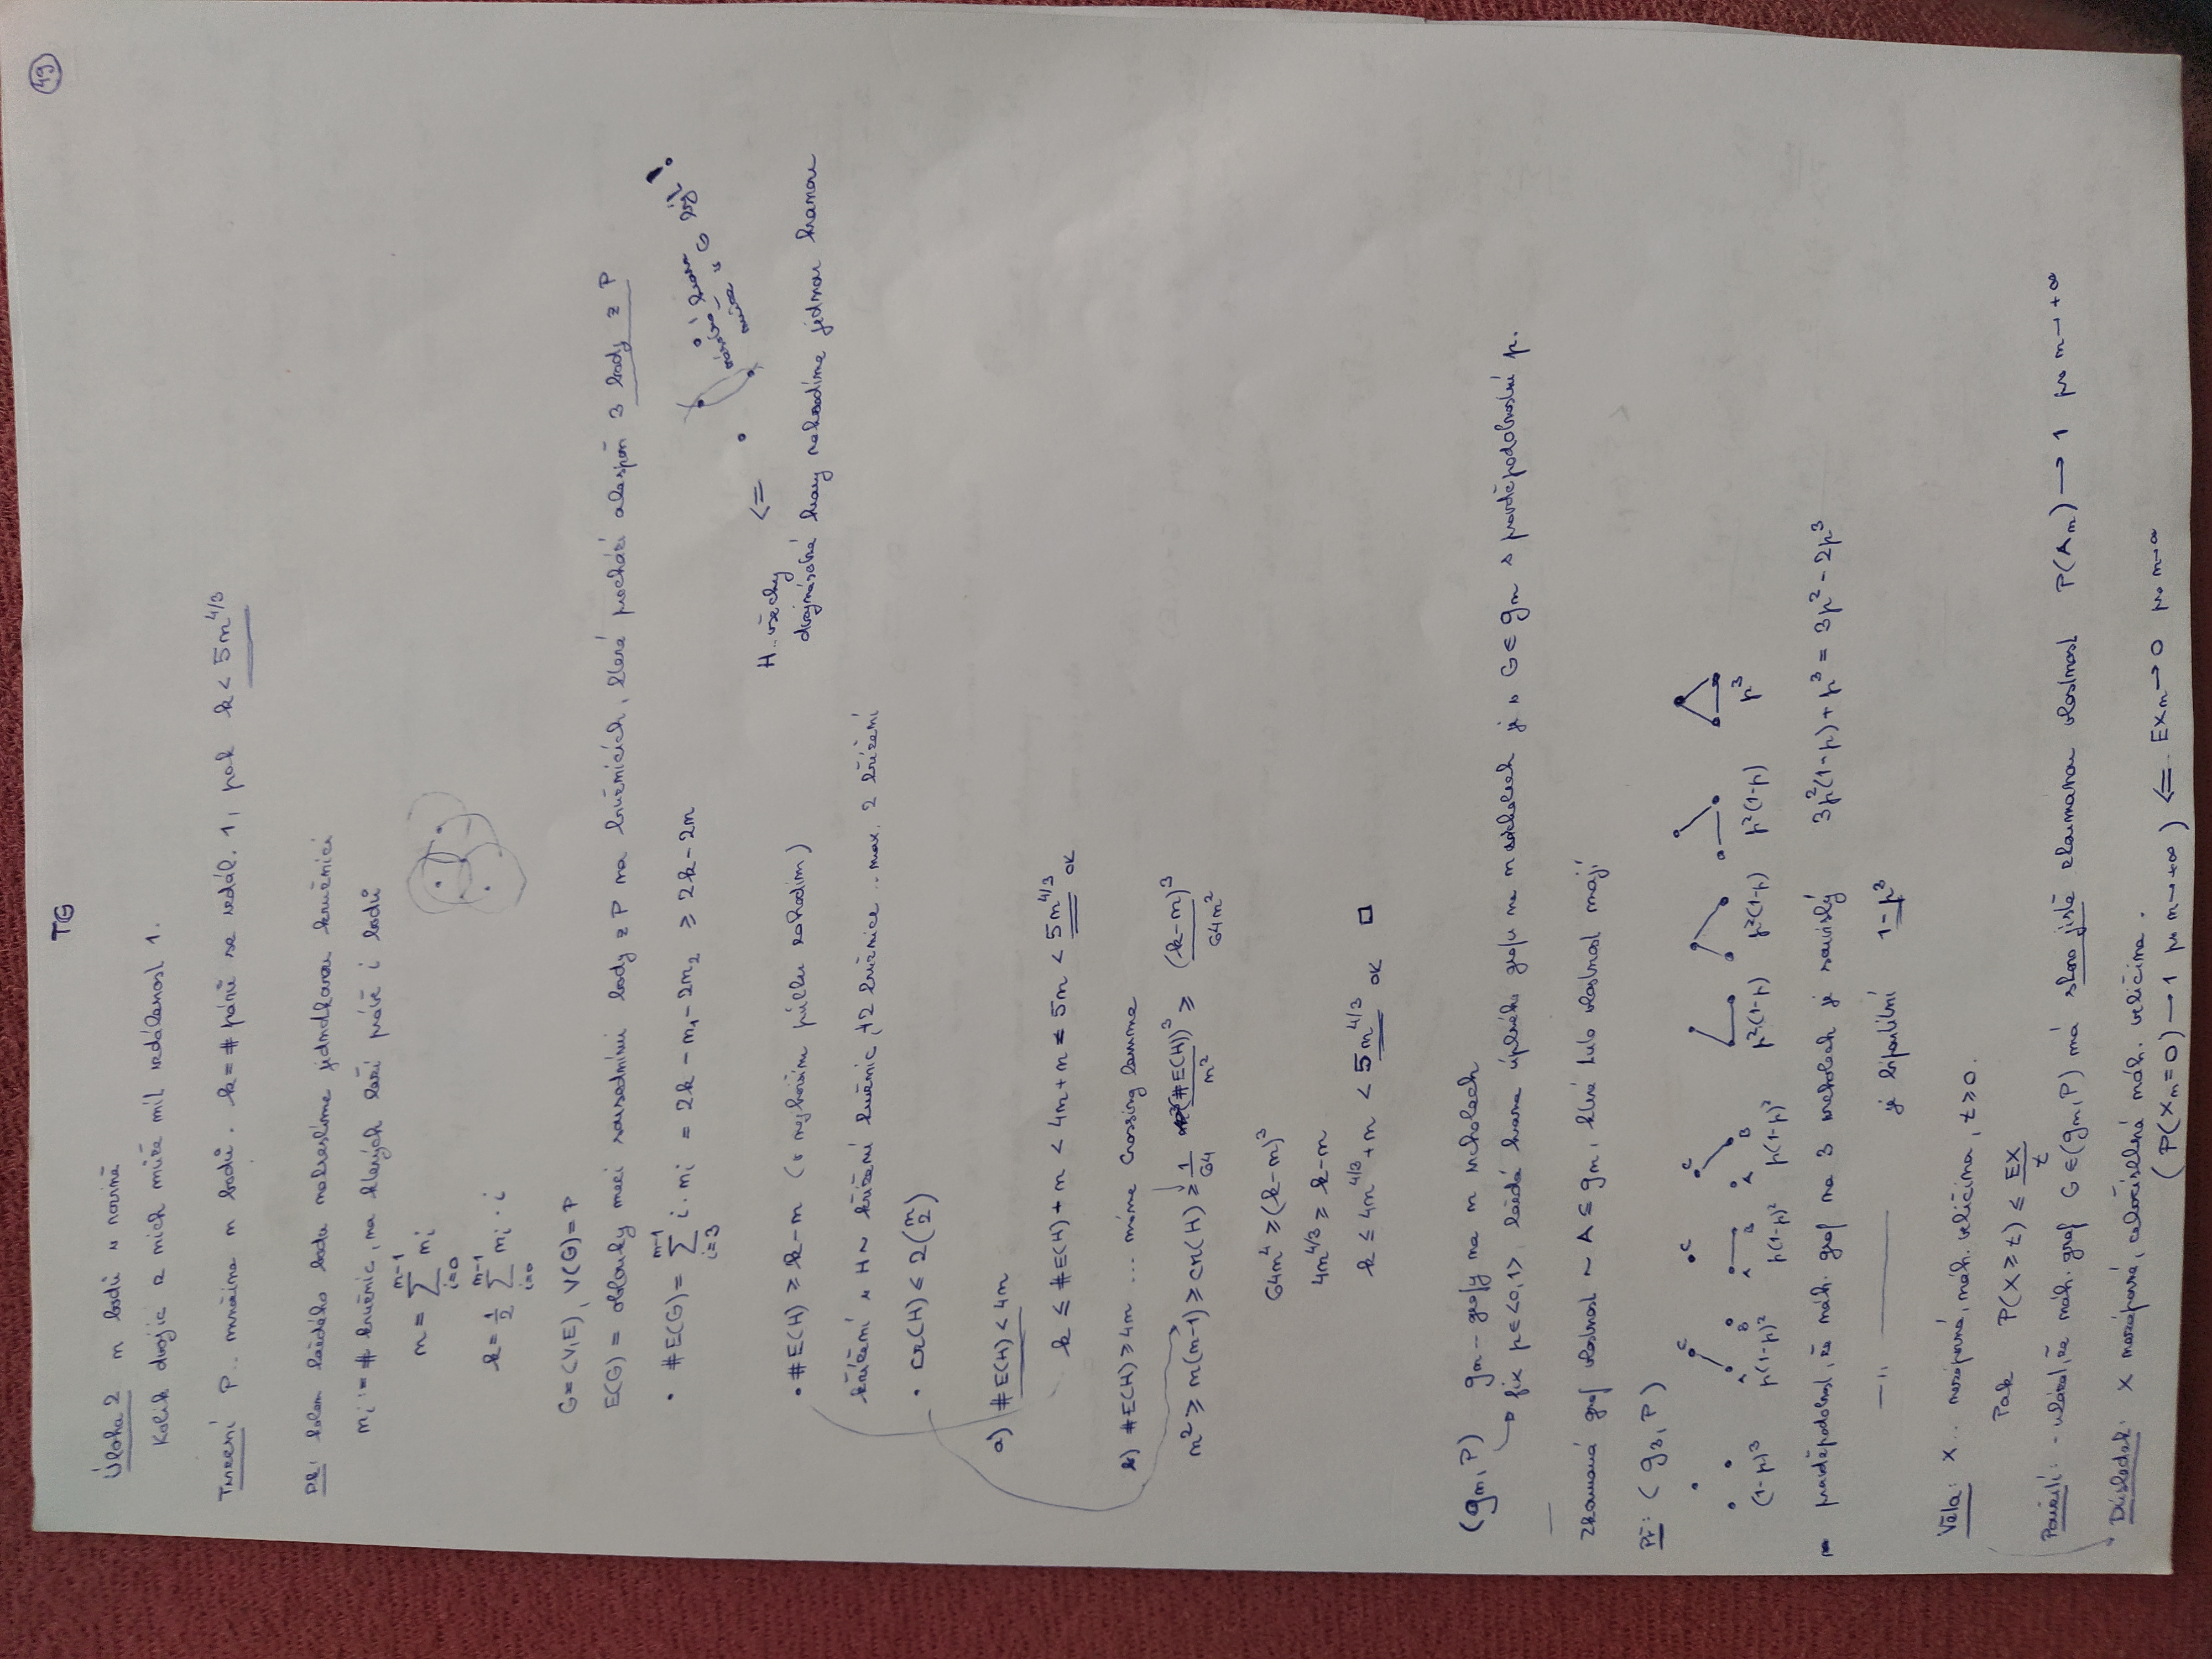 TG
49
Úloha 2 n bodů v rovině
Kolik dvojic z nich může mít vzdálenost 1.
Tvrzení P.. množina n bodů. k = # párů ve vzdál. 1, pak k < 5n^{4/3}
Dk: kolem každého bodu nakreslíme jednotkovou kružnici
n_i := # kružnic, na kterých leží právě i bodů
n = \sum_{i=0}^{n-1} n_i
k = \frac{1}{2} \sum_{i=0}^{n-1} n_i · i
G = (V,E), V(G) = P
E(G) = oblouky mezi sousedními body z P na kružnicích, které prochází alespoň 3 body z P
• #E(G) = \sum_{i=3}^{n-1} i · n_i = 2k - n_1 - 2n_2 ≥ 2k - 2n
násobná hrana
v G
H.. všechny <=
dvojnásobné hrany nahradíme jednou hranou
• #E(H) ≥ k - n (v nejhorším půlku zahodím)
křížení v H ~ křížení kružnic, 2 kružnice .. max. 2 křížení
• cr(H) ≤ 2\binom{n}{2}
a) #E(H) < 4n
k ≤ #E(H) + n < 4n + n = 5n < 5n^{4/3} ok
b) #E(H) ≥ 4n ... máme Crossing lemma
n² ≥ n(n-1) ≥ cr(H) ≥ \frac{1}{64} \frac{(#E(H))^3}{n^2} ≥ \frac{(k-n)^3}{64n^2}
64n^4 ≥ (k-n)^3
4n^{4/3} ≥ k-n
k ≤ 4n^{4/3} + n < 5n^{4/3} ok □
(g_n, P) g_n -- grafy na n vrcholech
fix p ∈ <0,1> každá hrana úplného grafu na n vrcholech je v G ∈ g_n s pravděpodobností p.
zkoumaná graf vlastnost ~ A ⊆ g_n, které tuto vlastnost mají
Př: (g_3, P)
C C C
A B A B A B
(1-p)^3 p(1-p)^2 p(1-p)^2 p(1-p)^2 p^2(1-p) p^2(1-p) p^2(1-p) p^3
pravděpodobnost, že náh. graf na 3 vrcholech je souvislý 3p^2(1-p) + p^3 = 3p^2 - 2p^3
— " — je bipartitní 1-p^3
Věta: X... nezáporná, náh. veličina, t ≥ 0.
Pak P(X ≥ t) ≤ \frac{EX}{t}
Použití: - ukázat, že náh. graf G ∈ (g_n, P) má skoro jistě zkoumanou vlastnost P(A_n) → 1 pro n → +∞
Důsledek: X nezáporná, celočíselná náh. veličina.
(P(X_n = 0) → 1 pro n → +∞) <= EX_n → 0 pro n → ∞